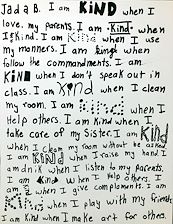 Jada B. I am KIND when I
love. my parents. I am Kind when
I am Kind. I am Kind when I use
my manners. I am kind when
follow the commandments. I am
KIND when I don't speak out in
class. I am Kind when I clean
my room. I am Kind when I
Help others. I am kind when I
take care of my Sister. I am Kind
when I clean my room without be asked
I am KIND when I raise my hand. I
am dnik when I listen to my parents.
I am KIND when I help others. I
am when I give complaments. I am
Kind when I play with my friends
I am kind when I make art for others.